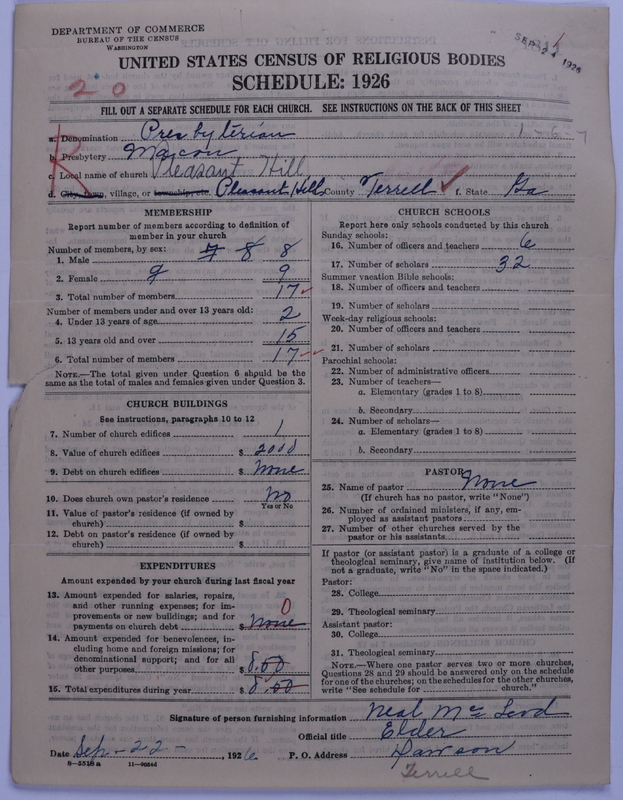 DEPARTMENT OF COMMERCE
BUREAU OF THE CENSUS
WASHINGTON
SEP 24 1926
UNITED STATES CENSUS OF RELIGIOUS BODIES
SCHEDULE: 1926
2 0
FILL OUT A SEPARATE SCHEDULE FOR EACH CHURCH. SEE INSTRUCTIONS ON THE BACK OF THIS SHEET
a. Denomination Presbyterian
1-6-7
b. Presbytery Macon
c. Local name of church Pleasant Hill
d. City, town, village, or township, etc. Pleasant Hill County Terrell f. State Ga
MEMBERSHIP
Report number of members according to definition of member in your church
Number of members, by sex:
1. Male 7 8 8
2. Female 9 9
3. Total number of members 17
Number of members under and over 13 years old:
4. Under 13 years of age 2
5. 13 years old and over 15
6. Total number of members 17
NOTE.—The total given under Question 6 should be the same as the total of males and females given under Question 3.
CHURCH BUILDINGS
See instructions, paragraphs 10 to 12
7. Number of church edifices 1
8. Value of church edifices $ 2000
9. Debt on church edifices $ None
10. Does church own pastor's residence No
Yes or No
11. Value of pastor's residence (if owned by church) $
12. Debt on pastor's residence (if owned by church) $
EXPENDITURES
Amount expended by your church during last fiscal year
13. Amount expended for salaries, repairs, and other running expenses; for improvements or new buildings; and for payments on church debt $ None 0
14. Amount expended for benevolences, including home and foreign missions; for denominational support; and for all other purposes $ 8.50
15. Total expenditures during year $ 8.50
CHURCH SCHOOLS
Report here only schools conducted by this church
Sunday schools:
16. Number of officers and teachers 6
17. Number of scholars 32
Summer vacation Bible schools:
18. Number of officers and teachers
19. Number of scholars
Week-day religious schools:
20. Number of officers and teachers
21. Number of scholars
Parochial schools:
22. Number of administrative officers
23. Number of teachers—
a. Elementary (grades 1 to 8)
b. Secondary
24. Number of scholars—
a. Elementary (grades 1 to 8)
b. Secondary
PASTOR
25. Name of pastor None
(If church has no pastor, write "None")
26. Number of ordained ministers, if any, employed as assistant pastors
27. Number of other churches served by the pastor or his assistants
If pastor (or assistant pastor) is a graduate of a college or theological seminary, give name of institution below. (If not a graduate, write "No" in the space indicated.)
Pastor:
28. College
29. Theological seminary
Assistant pastor:
30. College
31. Theological seminary
NOTE.—Where one pastor serves two or more churches, Questions 28 and 29 should be answered only on the schedule for one of the churches; on the schedules for the other churches, write "See schedule for church."
Signature of person furnishing information Neal McLeod
Official title Elder
Date Sep-22- , 1926 P. O. Address Dawson
8-5518a 11-9054d
Terrell